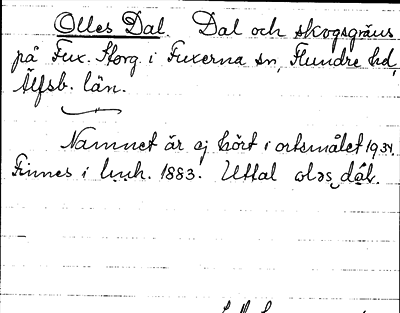 Olles Dal. Dal och skogsgräns
på Fux. Storg. i Fuxerna sn, Flundre hd,
Älfsb. län.
Namnet är ej hört i ortsmålet 1931.
Finnes i hmh. 1883. Uttal